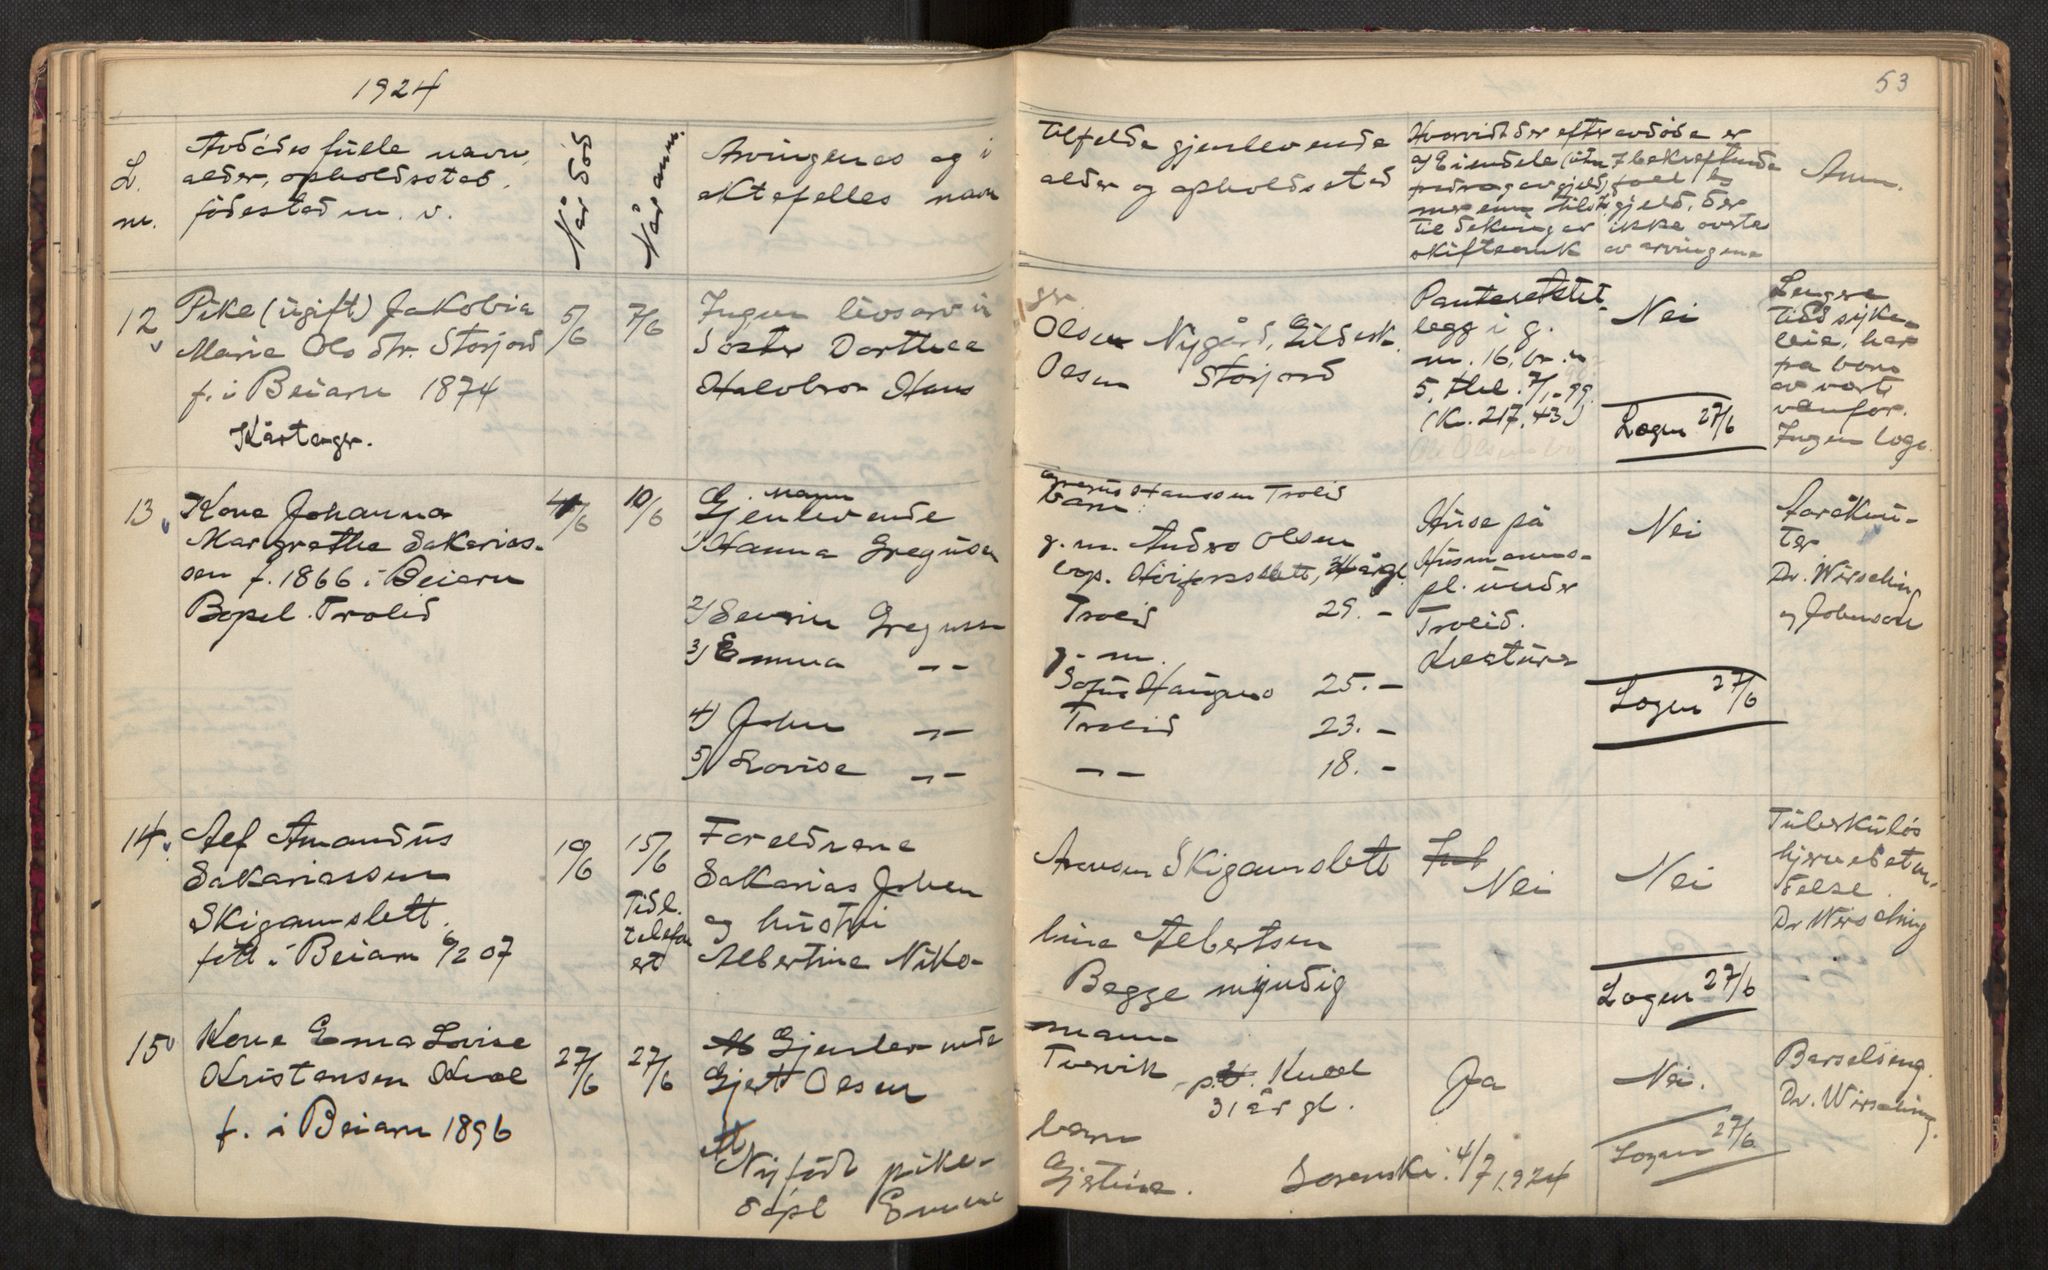 1924
53
L.
nr.
Avdødes fulle navn,
alder, opholdssted,
fødested m. v.
Når død
Når anm.
Arvingenes og i
ektefelles navn
tilfelde gjenlevende
alder og opholdssted
Hvorvidt der efter avdøde er
nu enn til
til dekning av ikke avste
skifteomk av arvingene
Anm.
12
Pike (ugift) Jakobia
Marie Ols dtr. Storjord
f. i Beiarn 1874
Kårtager.
5/6
7/6
Ingen livsarvi
Søster Dorthea
Halvbror Hans
gr
Olsen Nygård, Gildesk.
Olsen Storjord
Panteretstil
legg i g.
nr. 16, br. n
5, thl. 7/1-99.
(K. 217,43)
Nei
Logen 27/6
Lengre
tids syke-
leie, her
fra bone
av vort
venfor.
Ingen loge
13
Kone Johanna
Margrethe Sakarias-
sen f. 1866 i Beiarn
Bopel. Trolid
4/6
10/6
mann
Gjenlevende
1) Hanna Gregusen
2) Severin Gregussen
3) Emma -"-
4) John -"-
5) Lovise -"-
Gregus Hanssen Trolid
barn:
g. m. Andrs Olsen
bop. Høiforsslett, årgl.
Trolid 29.-
g. m.
Sofus Haugmo 25.-
Trolid 23.-
-"- 18.-
Huse på
Husmanns-
pl. under
Trolid.
Kreaturer
Nei
Logen 27/6
Dr. Wirsching
og Johnson
14
Alf Amandus
Sakariassen
Skigamslett.
født i Beiarn 6/2 07
10/6
15/6
Tidl.
telefon
ert
Foreldrene
Sakarias Johan
og hustru
Albertine Niko-
Arensen Skigamslett
line Albertsen
Begge myndig
Nei
Nei
Logen 27/6
Tuberkuløs
hjernebeten-
telse.
Dr Wirsching
15
Kone Emma Lovise
Kristensen Kvæl
f. i Beiarn 1896
27/6
27/6
Gjenlevende
Gjert Olsen
Nyfødt pike-
døpt Emma
mann
Tvervik p.t. Kvæl
31 år gl.
barn
Gjertine. Sorenskr. 4/7 1924
Ja
Nei.
Logen 27/6
Barselseng.
Dr. Wirsching.